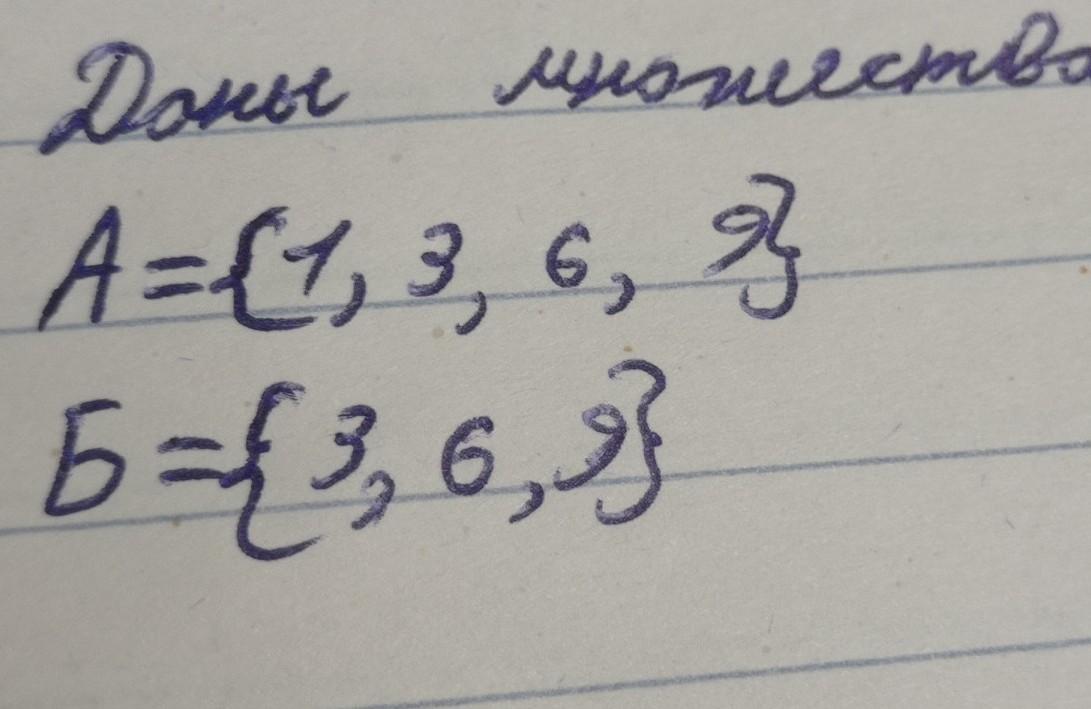 Даны множества
А={1, 3, 6, 9}
Б={3, 6, 9}